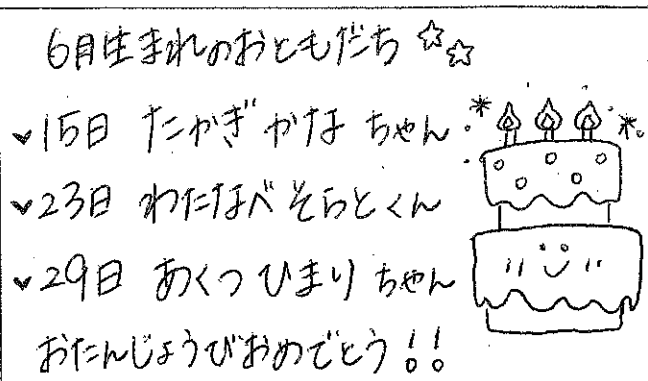 6月生まれのおともだち ☆☆
♥15日 たかぎ かな ちゃん
♥23日 わたなべ そらとくん
♥29日 あくつ ひまり ちゃん
おたんじょうびおめでとう!!